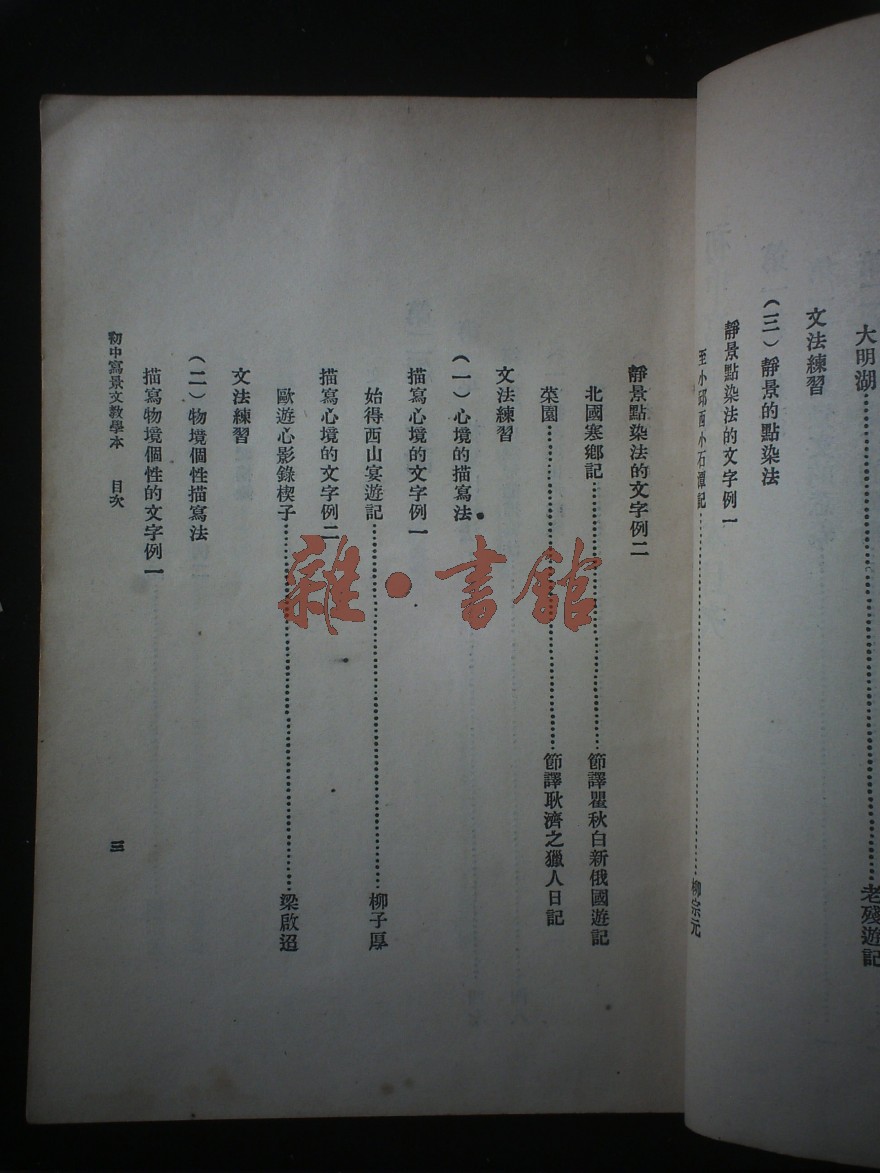 大明湖……老殘遊記
文法練習
（三）靜景的點染法
靜景點染法的文字例一
至小邱西小石潭記……柳宗元
靜景點染法的文字例二
北國寒鄉記……節譯瞿秋白新俄國遊記
菜園……節譯耿濟之獵人日記
文法練習
（一）心境的描寫法
描寫心境的文字例一
始得西山宴遊記……柳子厚
描寫心境的文字例二
歐遊心影錄楔子……梁啟迢
文法練習
（二）物境個性描寫法
描寫物境個性的文字例一
初中寫景文教學本 目次 三
雜·書館